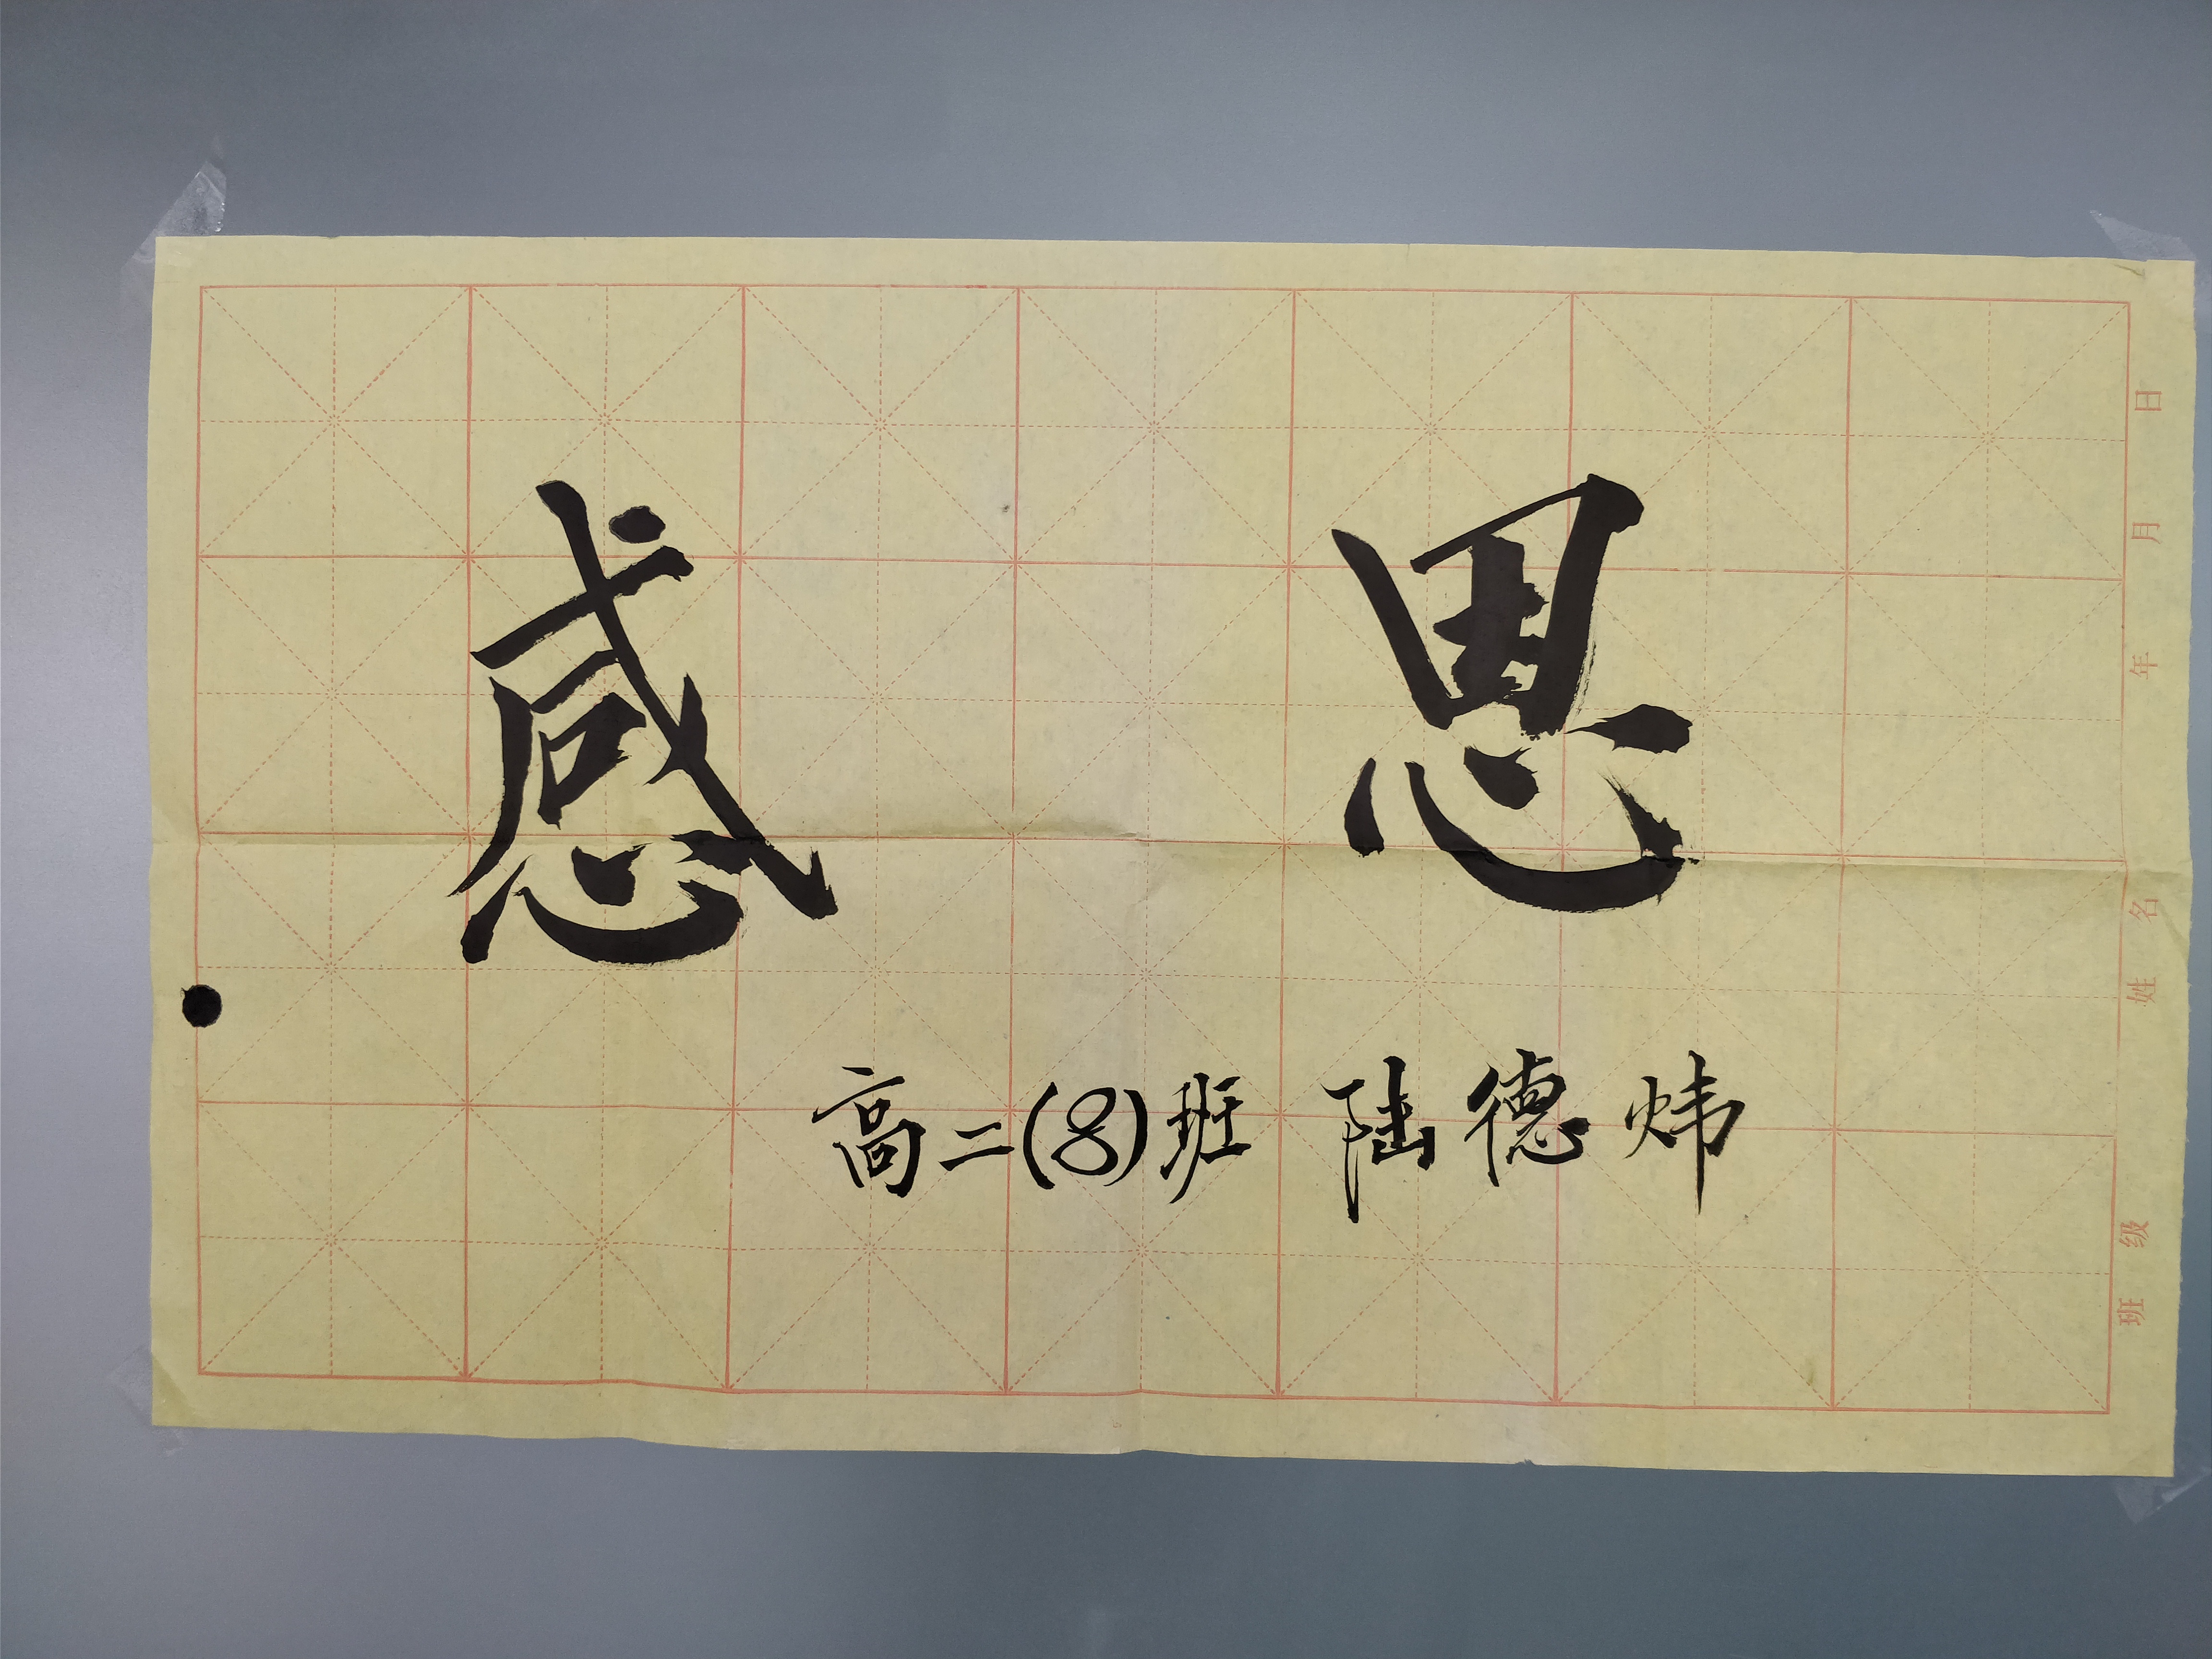 感 恩
高二(8)班 陆德炜
班级 姓名 年 月 日